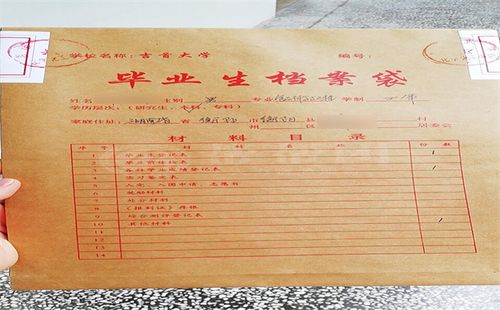 学校名称：吉首大学 编号：
毕业生档案袋
姓名 性别 男 专业 学制 四年
学历层次：（研究生、本科、专科）
家庭住址： 省 市 县 村
州 区 居委会
材料目录
序号 材料名称 份数
1 毕业生登记表 1
2 毕业前体检表
3 各科学业成绩登记表 1
4 实习鉴定表
5 入党、入团申请、志愿书
6 奖励材料
7 处分材料
8 《报到证》存根
9 综合测评登记表
10 其他材料 1
11
12
13
14